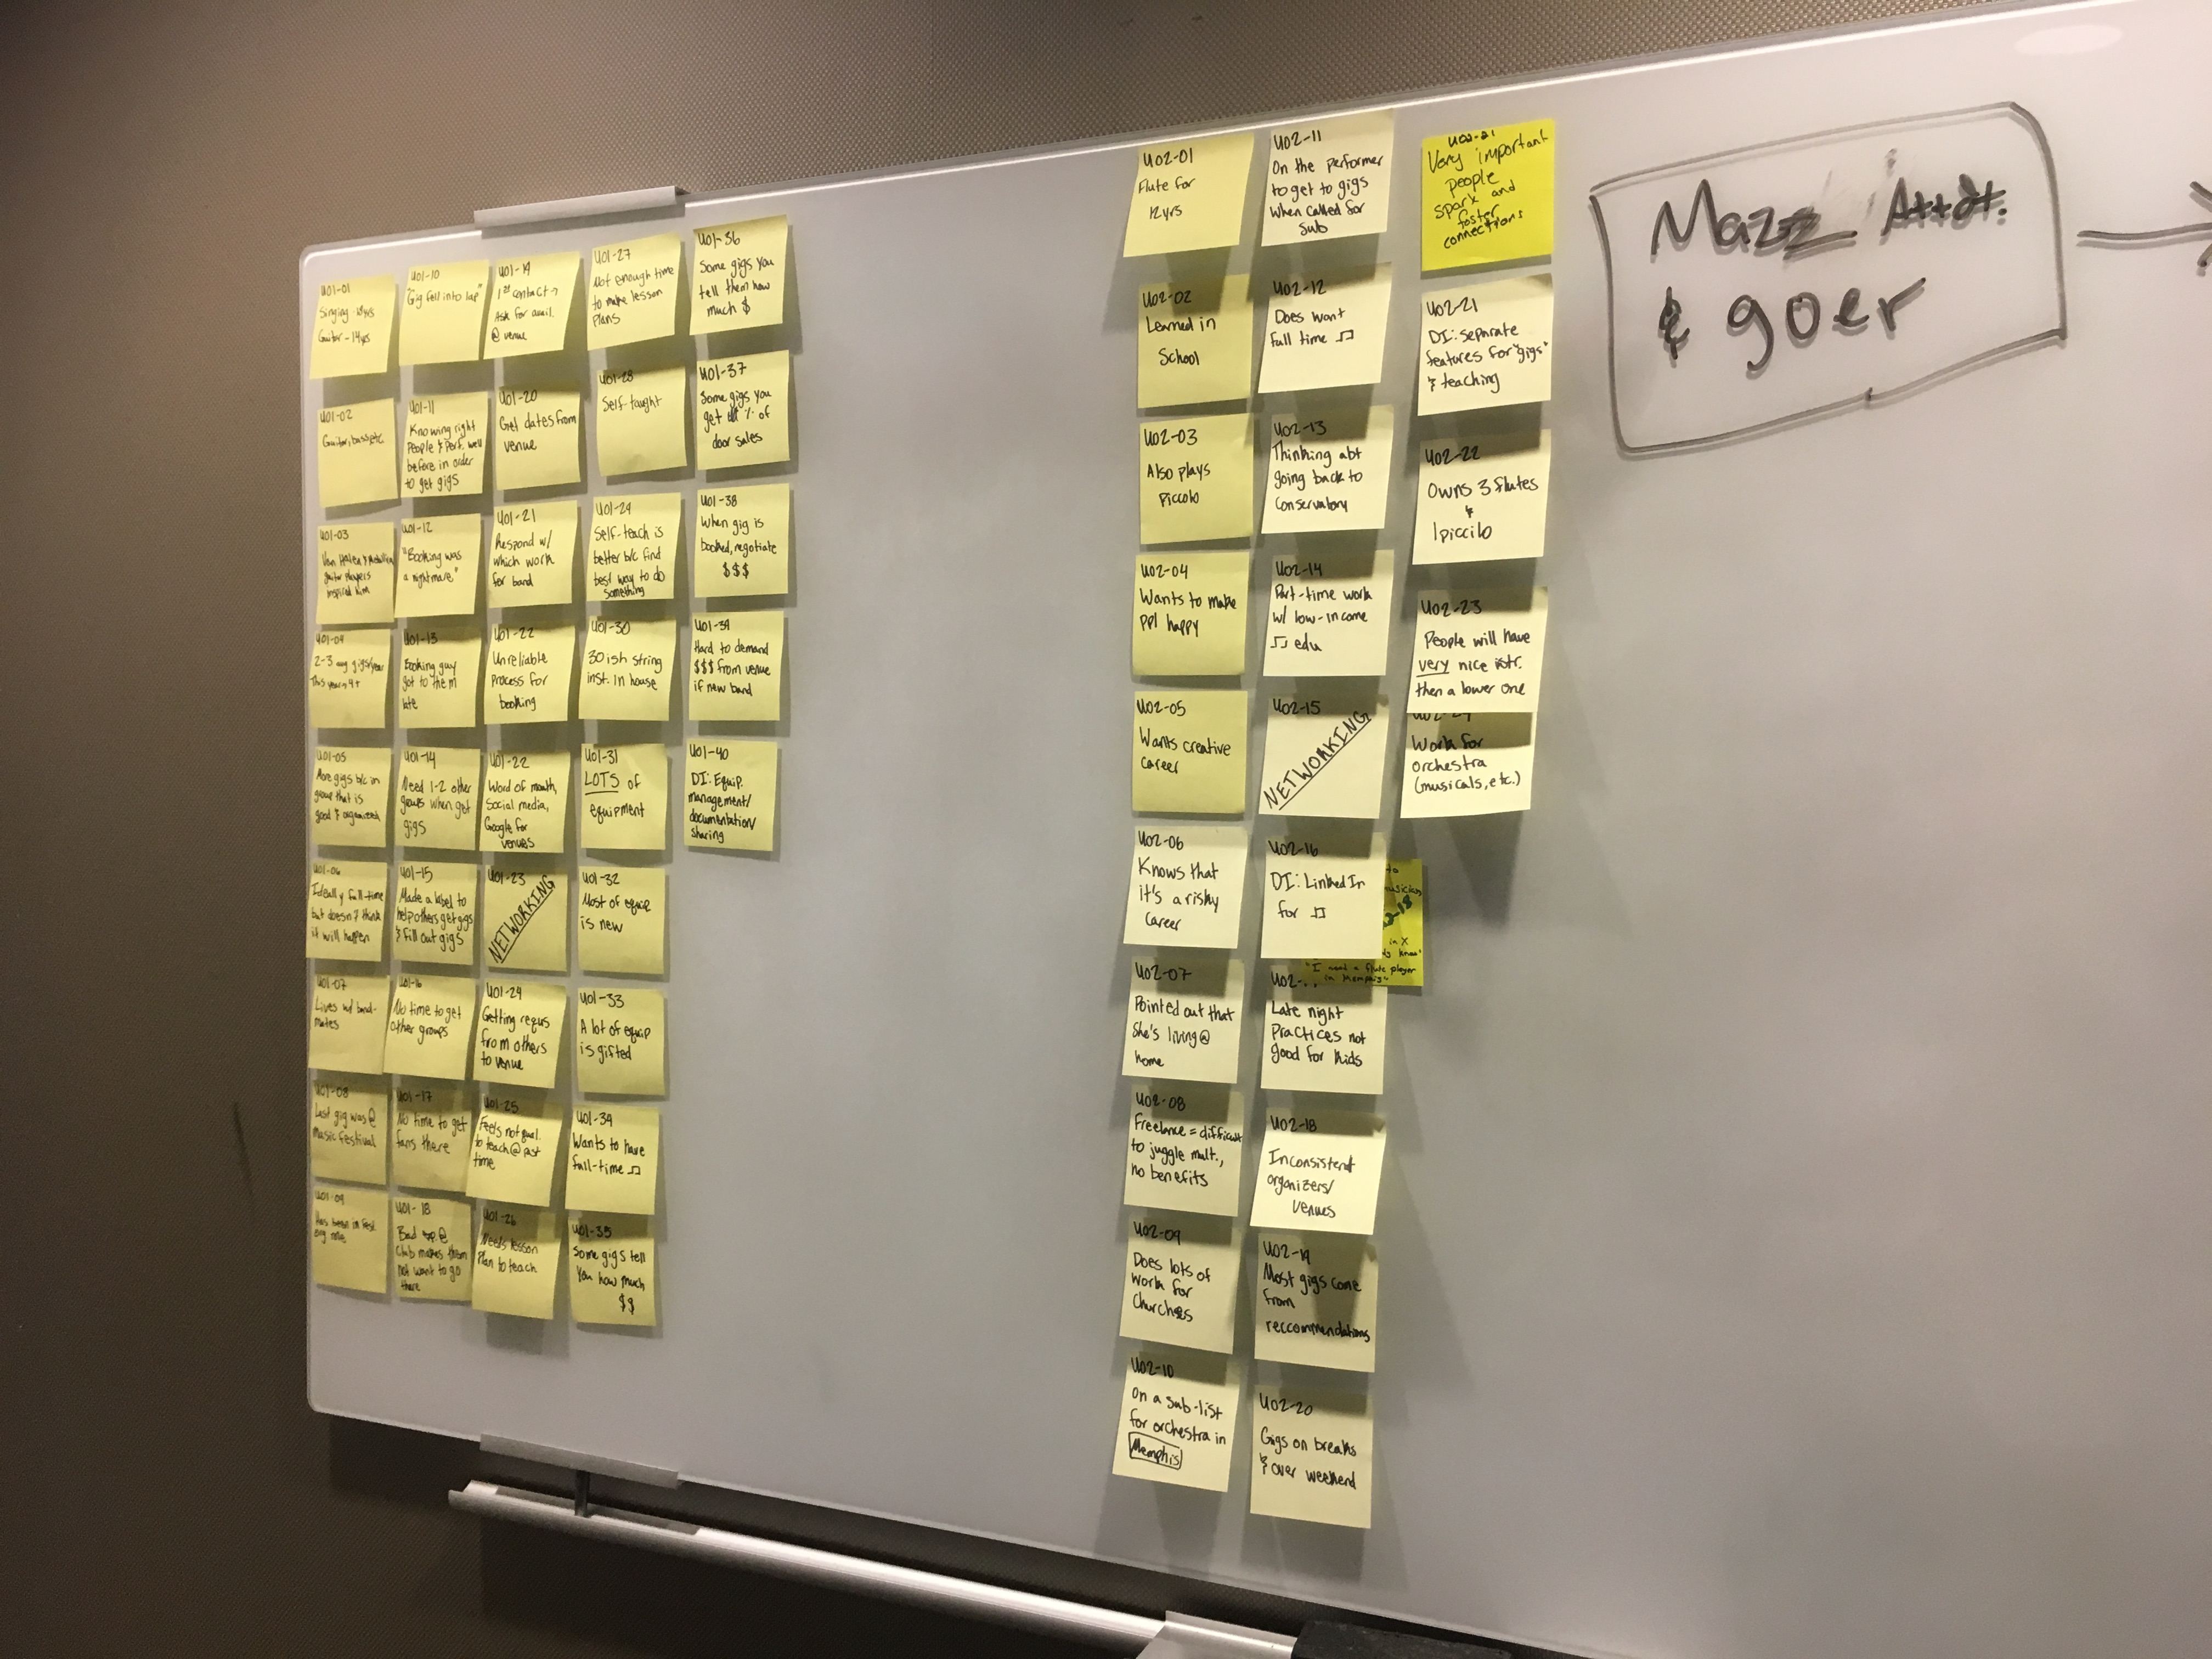 U01-01
Singing - 18yrs
Guitar - 14yrs
U01-02
Guitar, bass, etc.
U01-03
Van Halen & Metallica
guitar players
inspired him
U01-04
2-3 avg gigs/year
This year → 4+
U01-05
More gigs b/c in
group that is
good & organized
U01-06
Ideally full-time
but doesn't think
it will happen
U01-07
Lives w/ band-
mates
U01-08
Last gig was @
music festival
U01-09
Has been in fest.
U01-10
"Gig fell into lap"
U01-11
Knowing right
People & Perf. well
before in order
to get gigs
U01-12
"Booking was
a nightmare"
U01-13
Booking guy
got to them
late
U01-14
Need 1-2 other
groups when get
gigs
U01-15
Made a label to
help others get gigs
& fill out gigs
U01-16
No time to get
other groups
U01-17
No time to get
fans there
U01-18
Bad exp. @
Club makes them
not want to go
there
U01-19
1st contact →
Ask for avail.
@ venue
U01-20
Get dates from
venue
U01-21
Respond w/
which work
for band
U01-22
Unreliable
process for
booking
U01-22
Word of mouth,
Social media,
Google for
venues
U01-23
NETWORKING
U01-24
Getting requs
from others
to venue
U01-25
Feels not qual.
to teach @ past
time
U01-26
Needs lesson
Plan to teach
U01-27
Not enough time
to make lesson
plans
U01-28
Self-taught
U01-29
Self-teach is
better b/c find
best way to do
something
U01-30
30 ish string
inst. in house
U01-31
LOTS of
equipment
U01-32
Most of equip
is new
U01-33
A lot of equip
is gifted
U01-34
Wants to have
full-time ♫
U01-35
Some gigs tell
You how much
$$
U01-36
Some gigs you
tell them how
much $
U01-37
Some gigs you
get % of
door sales
U01-38
When gig is
booked, negotiate
$$$
U01-39
Hard to demand
$$$ from venue
if new band
U01-40
DI: Equip.
management/
documentation/
sharing
U02-01
Flute for
12yrs
U02-02
Learned in
School
U02-03
Also plays
Piccolo
U02-04
Wants to make
ppl happy
U02-05
Wants creative
career
U02-06
Knows that
it's a risky
career
U02-07
Pointed out that
She's living @
home
U02-08
Freelance = difficult
to juggle mult.,
no benefits
U02-09
Does lots of
work for
Churches
U02-10
On a sub-list
for orchestra in
Memphis
U02-11
On the performer
to get to gigs
when called for
sub
U02-12
Does want
full time ♫
U02-13
Thinking abt
going back to
Conservatory
U02-14
Part-time work
w/ low-income
♫ edu
U02-15
NETWORKING
U02-16
DI: LinkedIn
for ♫
to
musician
2-18
in X
"I need a flute player
in Memphis"
U02-
Late night
Practices not
good for kids
U02-18
Inconsistent
organizers/
venues
U02-19
Most gigs come
from
reccommendations
U02-20
Gigs on breaks
& over weekend
U02-21
Very important
people
spark and
foster
connections
U02-21
DI: Separate
features for "gigs"
& teaching
U02-22
Owns 3 flutes
&
1 piccilo
U02-23
People will have
very nice istr.
then a lower one
U02-24
Work for
orchestra
(musicals, etc.)
Mazz Attdt.
& goer